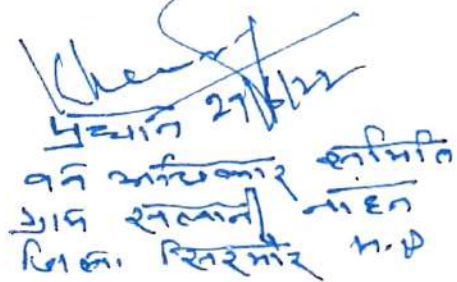 प्रधान 27/6/22
वन अधिकार समिति
ग्राम सलानी नाहन
जिला सिरमौर H.P